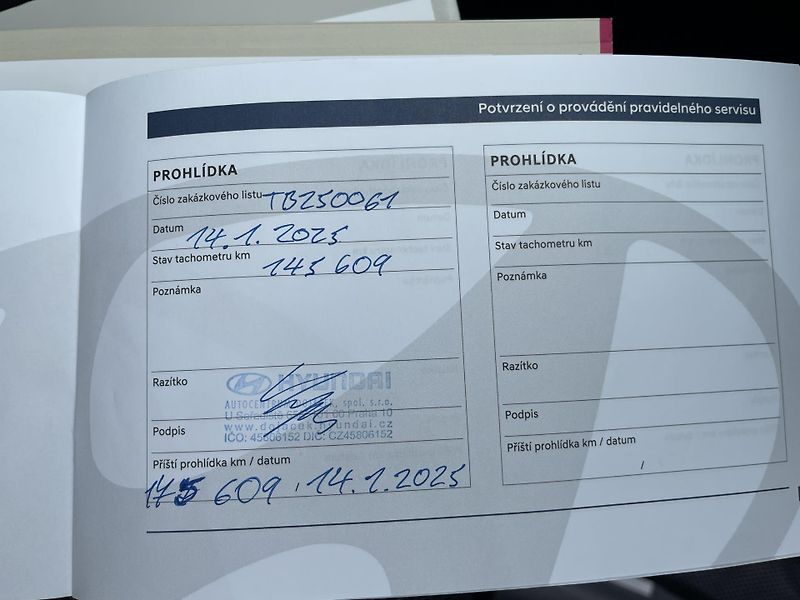 Potvrzení o provádění pravidelného servisu
PROHLÍDKA
Číslo zakázkového listu TB250061
Datum 14.1.2025
Stav tachometru km 145 609
Poznámka
Razítko
HYUNDAI
AUTOCENTRUM spol. s.r.o.
Praha 10
www.dojacek.hyundai.cz
IČO: 45806152 DIČ: CZ45806152
Podpis
Příští prohlídka km / datum
175 609, 14.1.2025
PROHLÍDKA
Číslo zakázkového listu
Datum
Stav tachometru km
Poznámka
Razítko
Podpis
Příští prohlídka km / datum
/